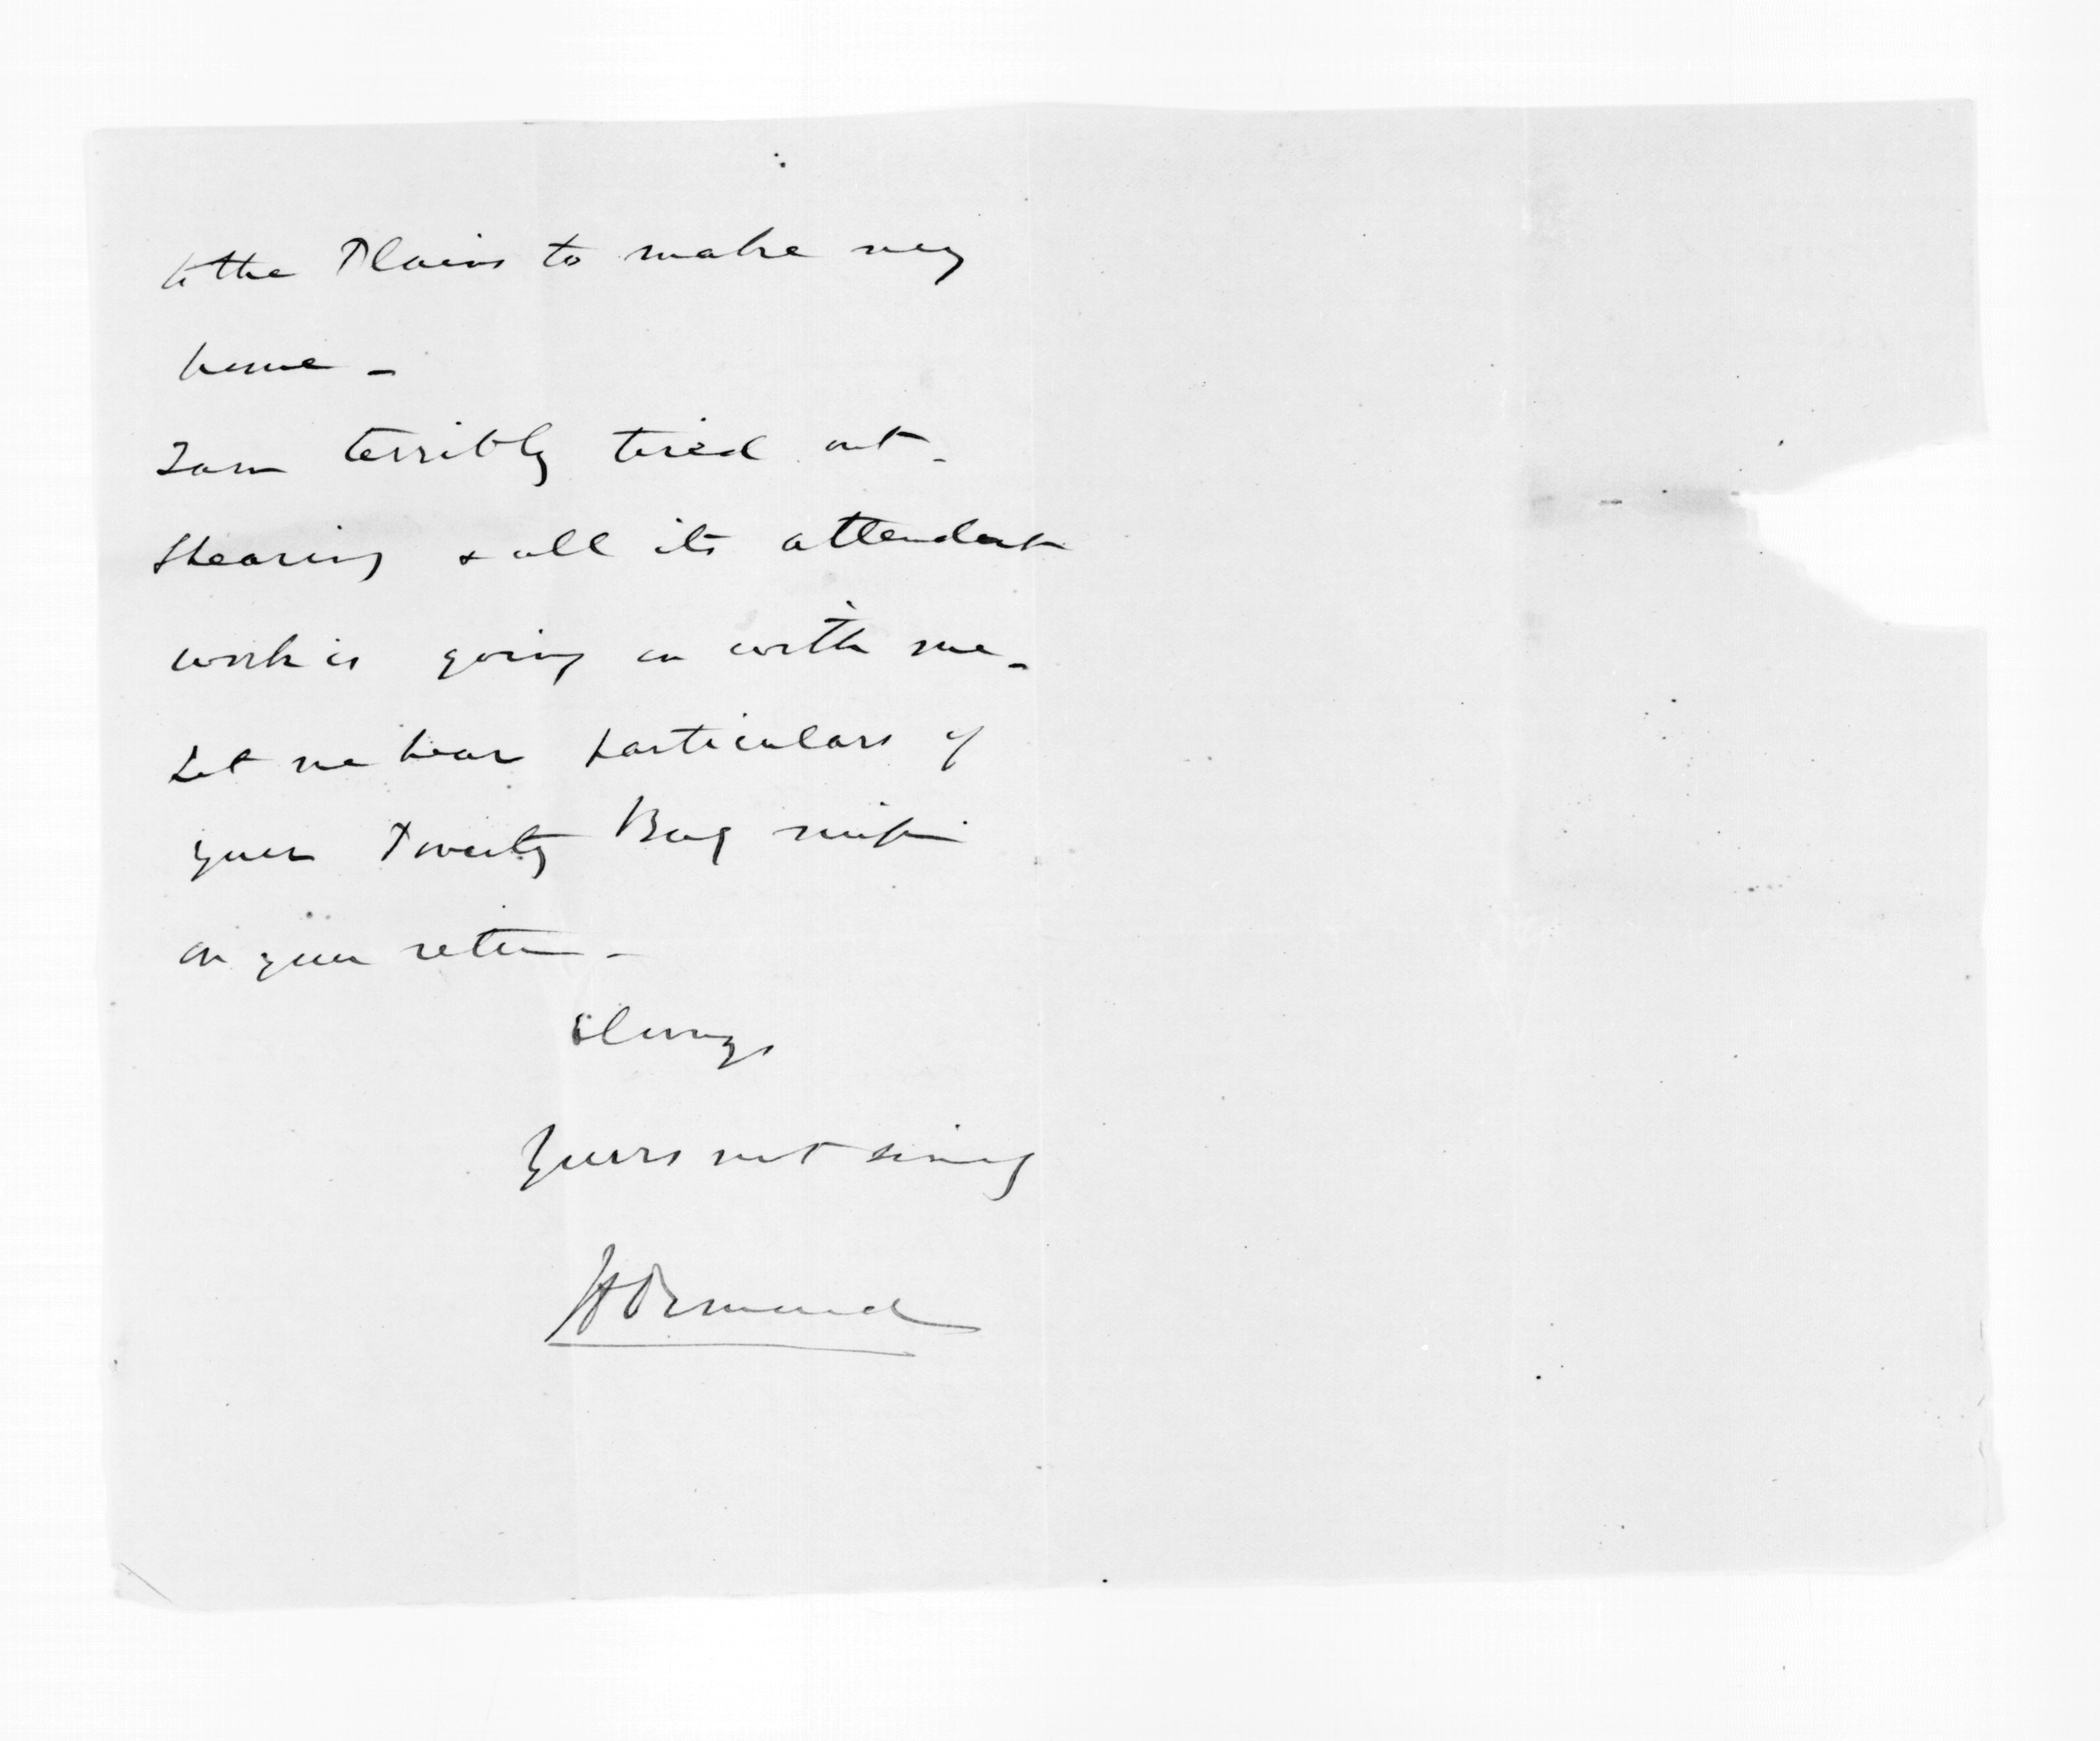 to the Plains to make my
home -
I am terribly tired out -
Shearing & all its attendant
work is going on with me -
Let me hear particulars of
your Poverty Bay mission
on your return -
Always
Yours most sincerely
JD Ormond